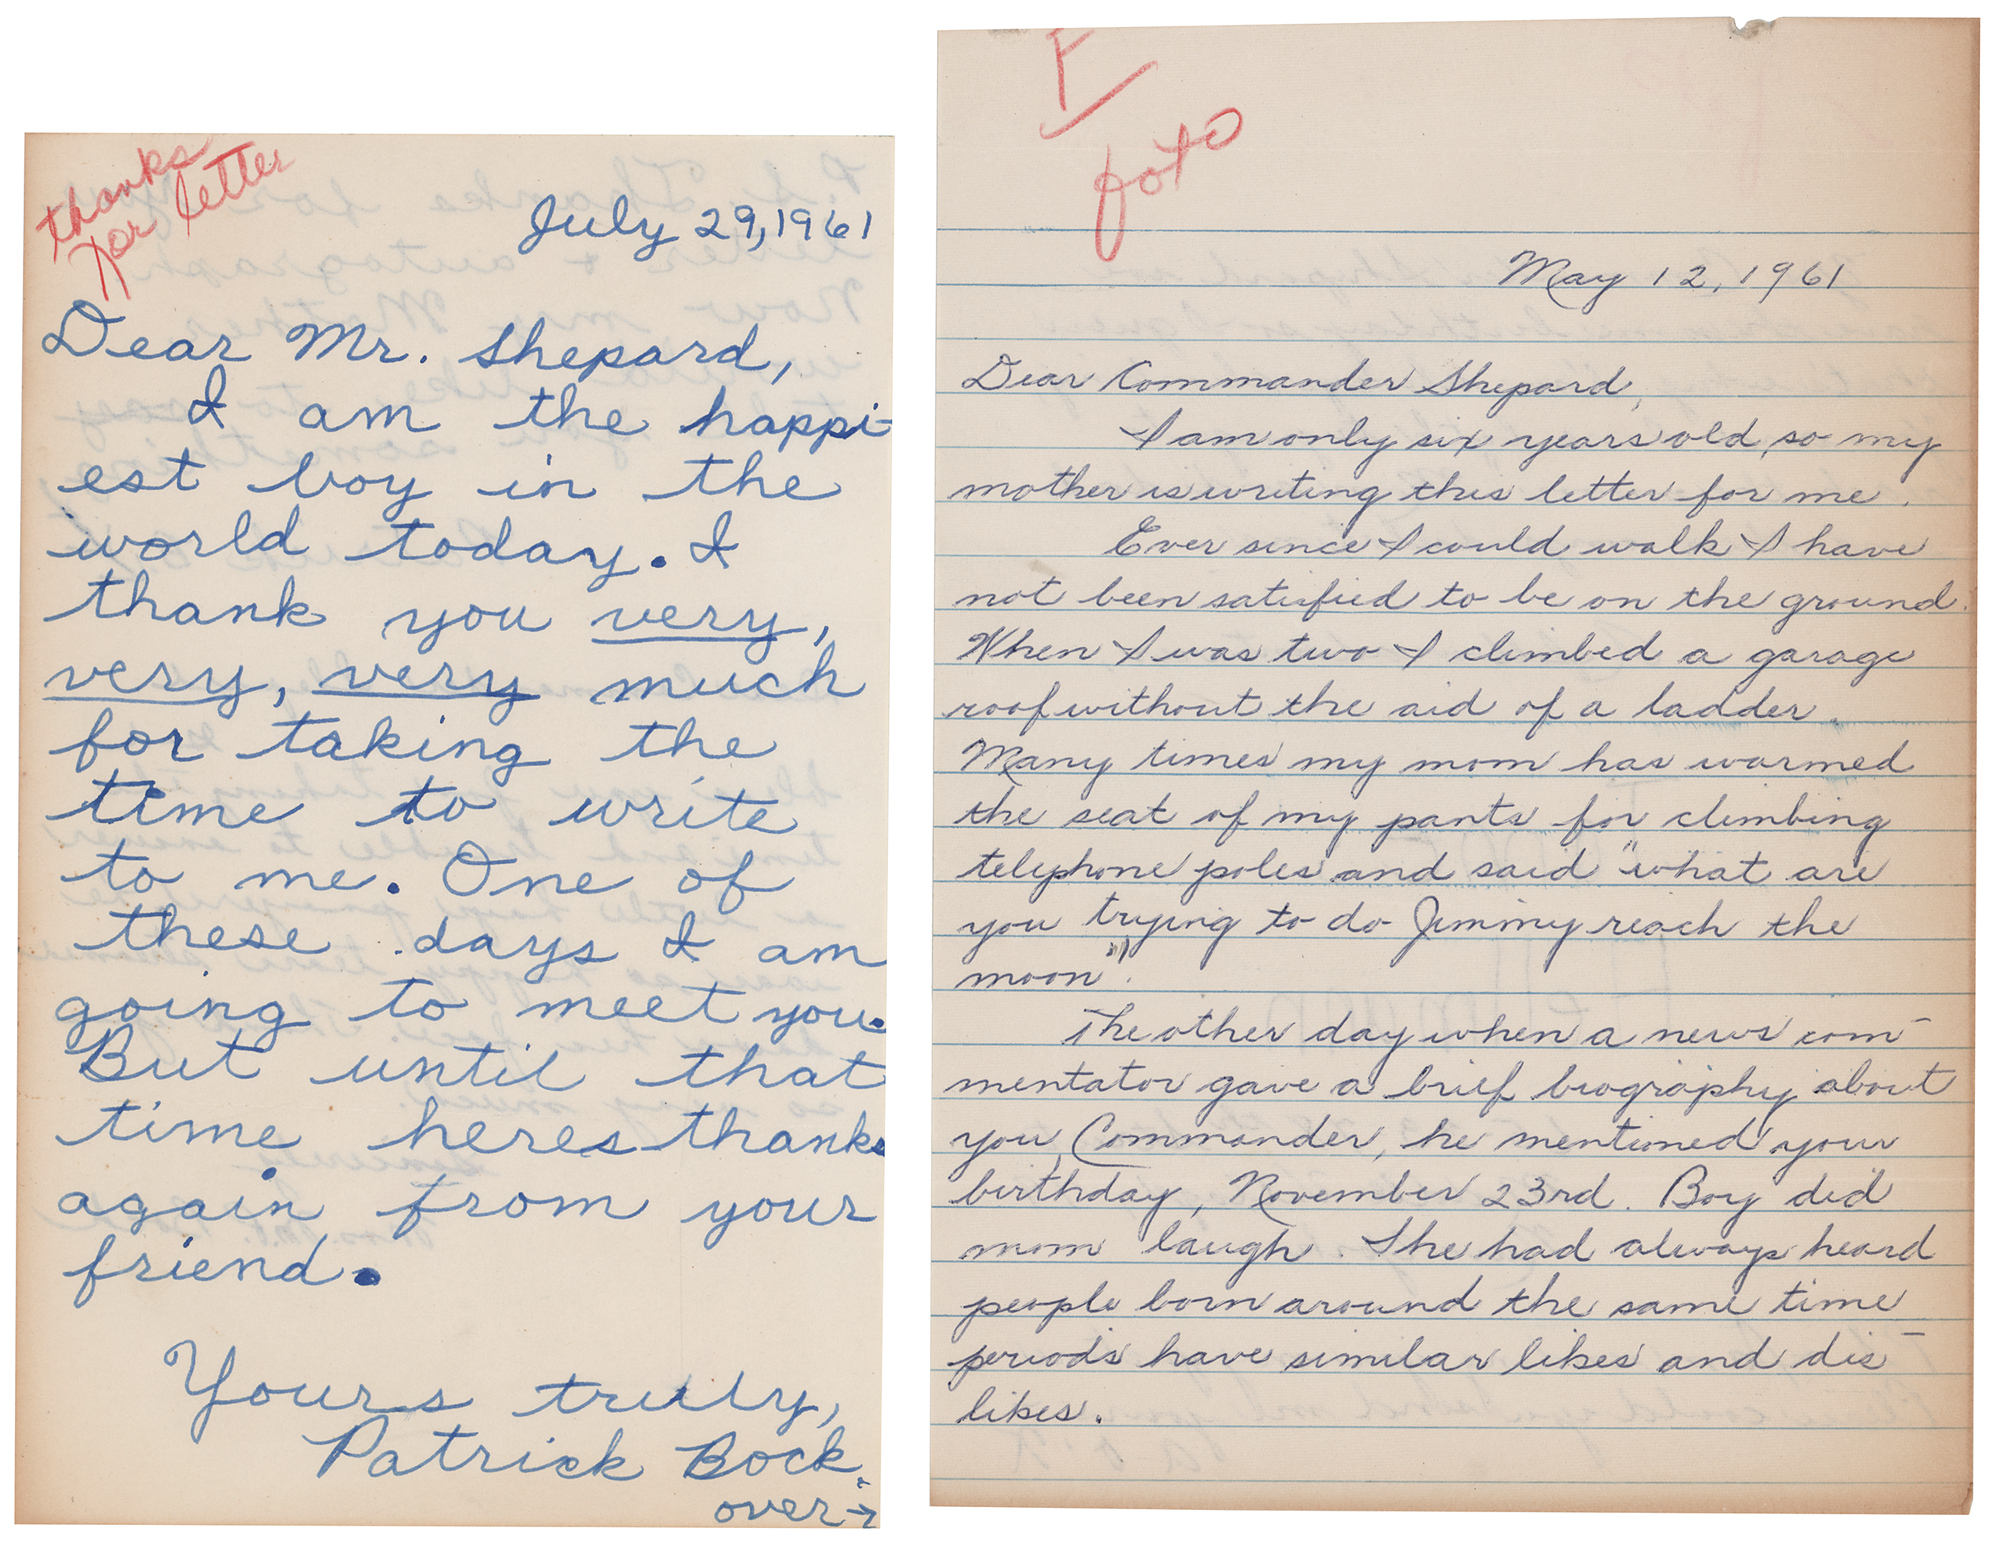 thanks
for letter
July 29, 1961
Dear Mr. Shepard,
I am the happi-
est boy in the
world today. I
thank you very,
very, very much
for taking the
time to write
to me. One of
these days I am
going to meet you.
But until that
time heres thanks
again from your
friend.
Yours truly,
Patrick Bock.
over→
F
foto
May 12, 1961
Dear Commander Shepard,
I am only six years old, so my
mother is writing this letter for me.
Ever since I could walk I have
not been satisfied to be on the ground.
When I was two I climbed a garage
roof without the aid of a ladder.
Many times my mom has warmed
the seat of my pants for climbing
telephone poles and said "what are
you trying to do Jimmy reach the
moon".
The other day when a news com-
mentator gave a brief biography about
you, Commander, he mentioned your
birthday, November 23rd. Boy did
mom laugh. She had always heard
people born around the same time
periods have similar likes and dis-
likes.